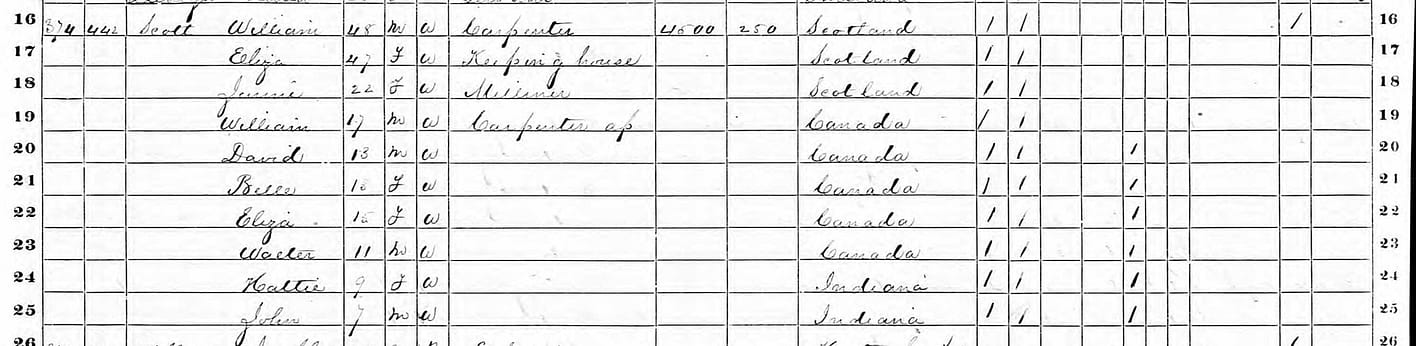 16 374 442 Scott William 48 M W Carpenter 4500 250 Scotland / / / 16
17 Eliza 47 F W Keeping house Scotland / / 17
18 Jennie 22 F W Milliner Scotland / / 18
19 William 17 M W Carpenter ap Canada / / 19
20 David 13 M W Canada / / / 20
21 Belle F W Canada / / / 21
22 Eliza 15 F W Canada / / / 22
23 Walter 11 M W Canada / / / 23
24 Hattie 9 F W Indiana / / / 24
25 John 7 M W Indiana / / / 25
26 26